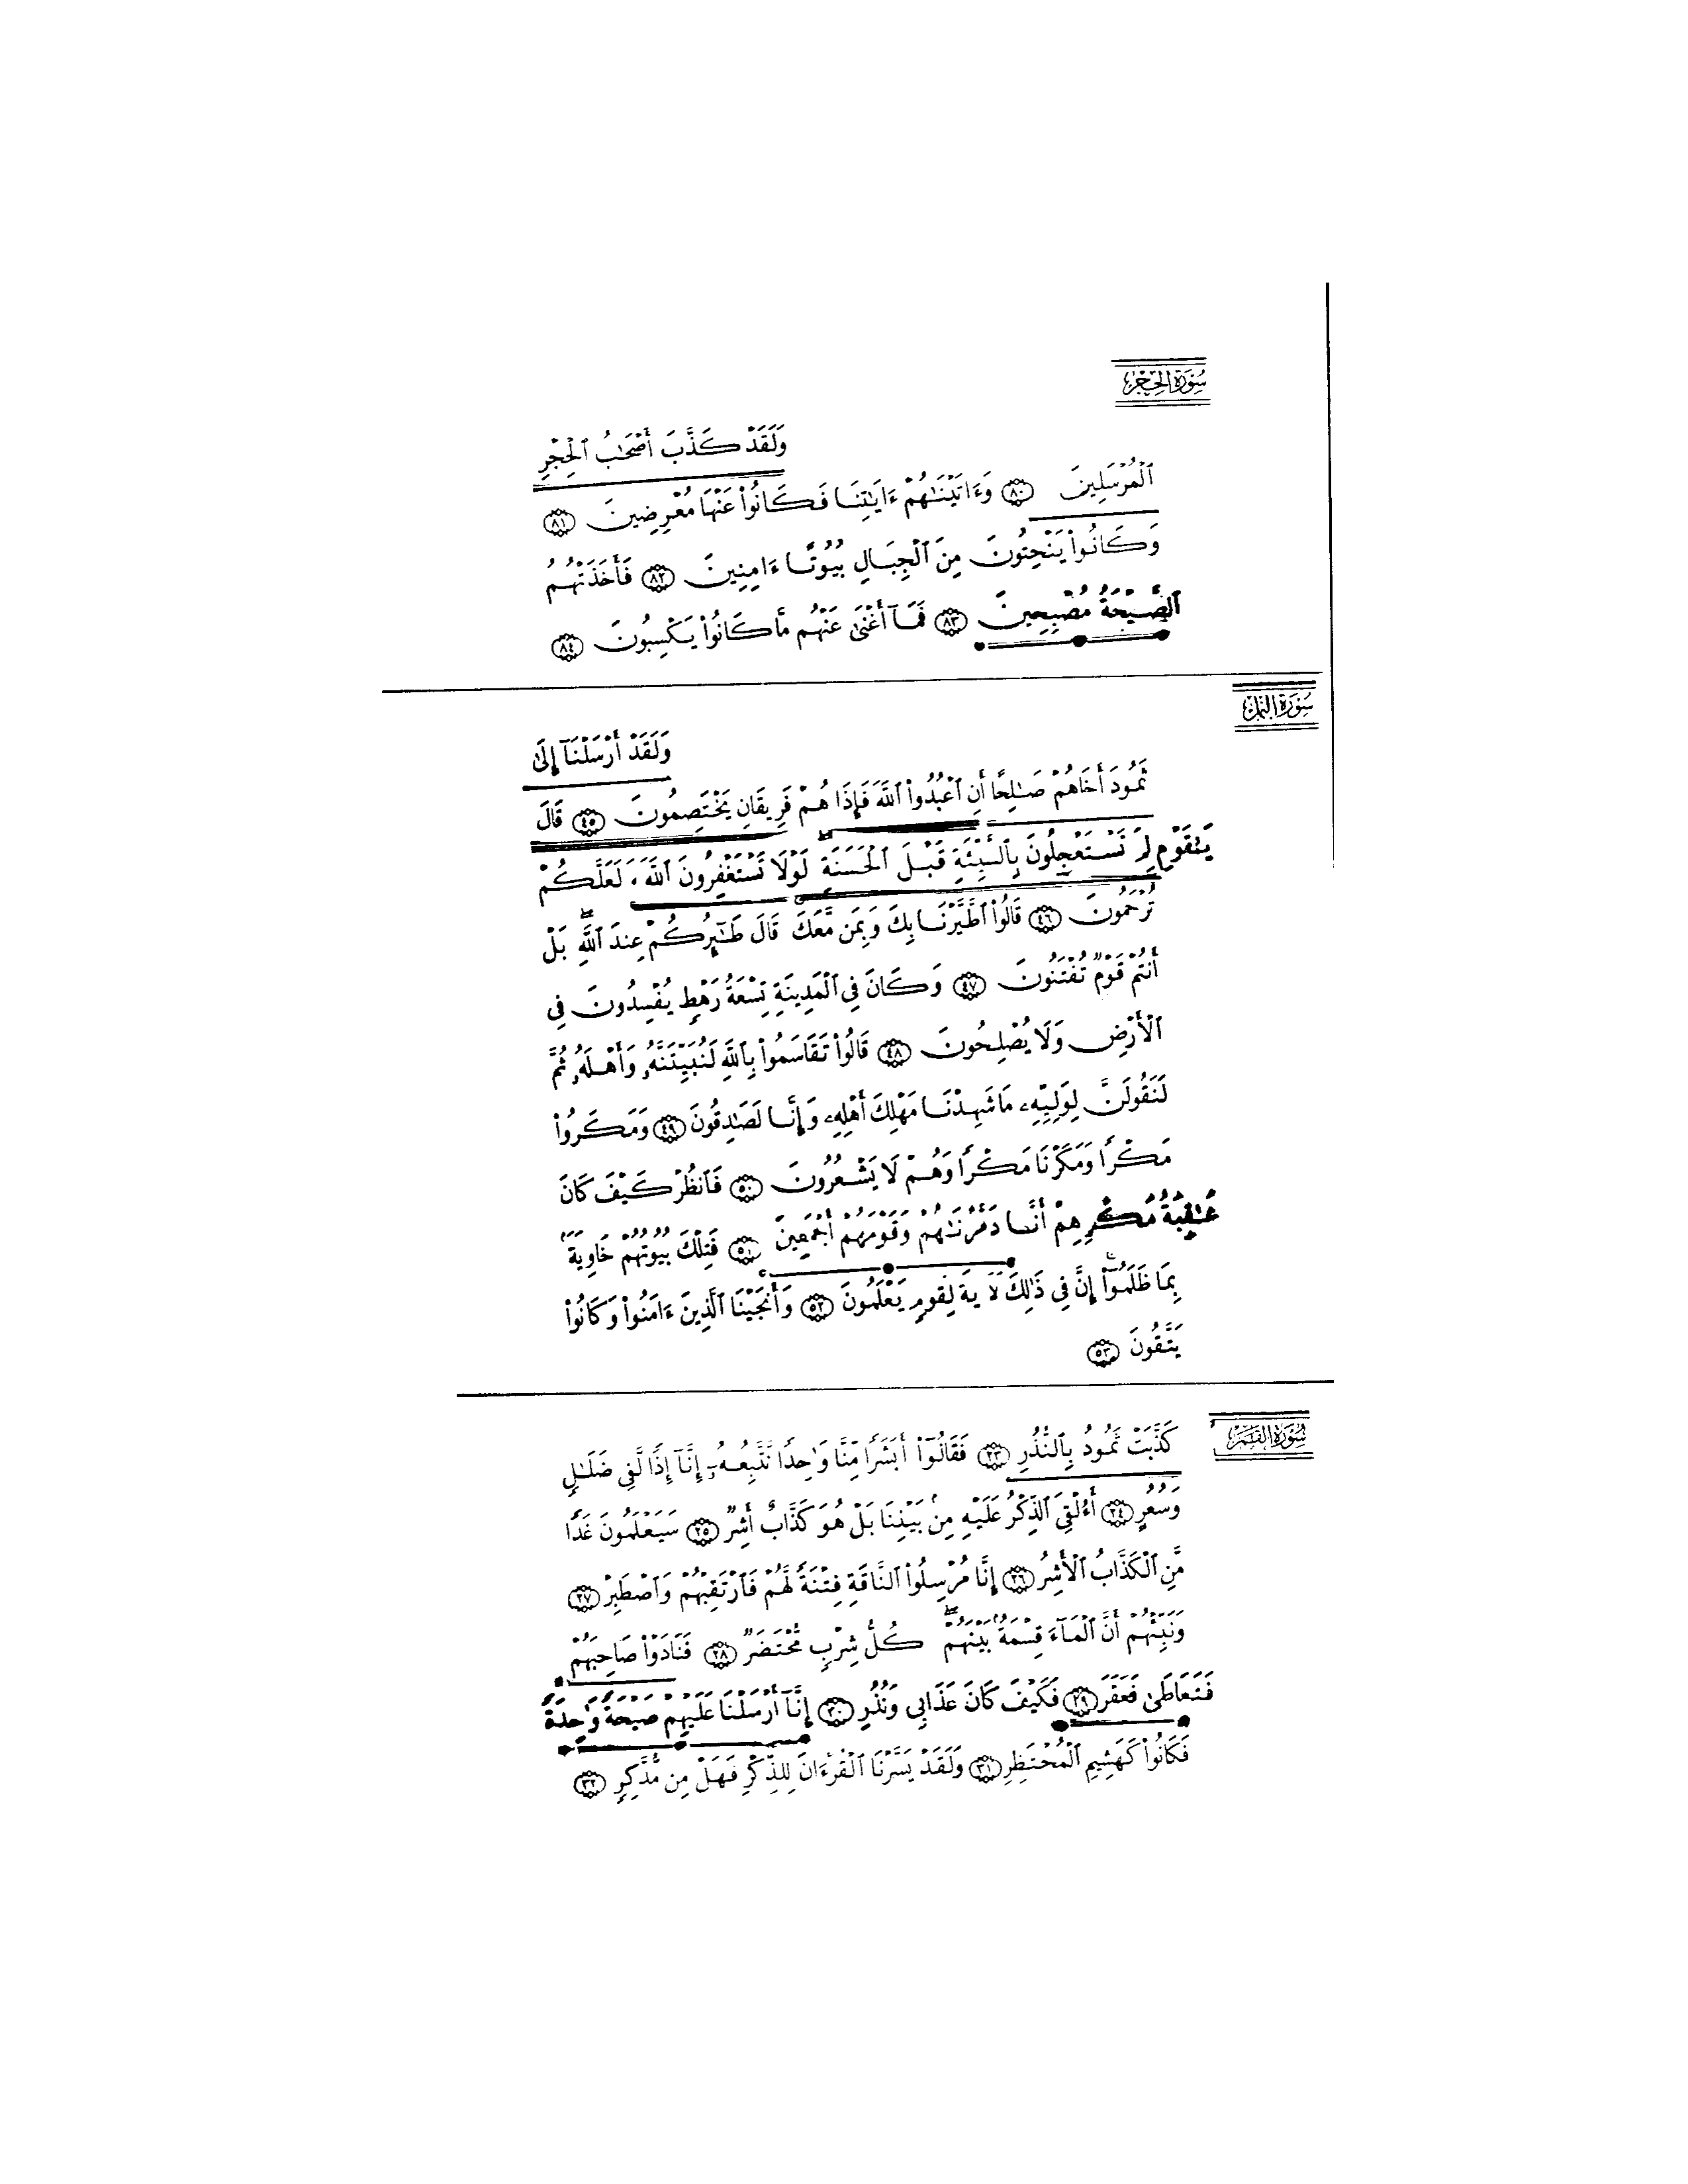 سُورَةُ الحِجْرِ
وَلَقَدْ كَذَّبَ أَصْحَٰبُ ٱلْحِجْرِ
ٱلْمُرْسَلِينَ ٨٠ وَءَاتَيْنَٰهُمْ ءَايَٰتِنَا فَكَانُوا۟ عَنْهَا مُعْرِضِينَ ٨١
وَكَانُوا۟ يَنْحِتُونَ مِنَ ٱلْجِبَالِ بُيُوتًا ءَامِنِينَ ٨٢ فَأَخَذَتْهُمُ
ٱلصَّيْحَةُ مُصْبِحِينَ ٨٣ فَمَآ أَغْنَىٰ عَنْهُم مَّا كَانُوا۟ يَكْسِبُونَ ٨٤
سُورَةُ النَّمْلِ
وَلَقَدْ أَرْسَلْنَآ إِلَىٰ
ثَمُودَ أَخَاهُمْ صَٰلِحًا أَنِ ٱعْبُدُوا۟ ٱللَّهَ فَإِذَا هُمْ فَرِيقَانِ يَخْتَصِمُونَ ٤٥ قَالَ
يَٰقَوْمِ لِمَ تَسْتَعْجِلُونَ بِٱلسَّيِّئَةِ قَبْلَ ٱلْحَسَنَةِ لَوْلَا تَسْتَغْفِرُونَ ٱللَّهَ لَعَلَّكُمْ
تُرْحَمُونَ ٤٦ قَالُوا۟ ٱطَّيَّرْنَا بِكَ وَبِمَن مَّعَكَ قَالَ طَٰٓئِرُكُمْ عِندَ ٱللَّهِ ۖ بَلْ
أَنتُمْ قَوْمٌ تُفْتَنُونَ ٤٧ وَكَانَ فِى ٱلْمَدِينَةِ تِسْعَةُ رَهْطٍ يُفْسِدُونَ فِى
ٱلْأَرْضِ وَلَا يُصْلِحُونَ ٤٨ قَالُوا۟ تَقَاسَمُوا۟ بِٱللَّهِ لَنُبَيِّتَنَّهُۥ وَأَهْلَهُۥ ثُمَّ
لَنَقُولَنَّ لِوَلِيِّهِۦ مَا شَهِدْنَا مَهْلِكَ أَهْلِهِۦ وَإِنَّا لَصَٰدِقُونَ ٤٩ وَمَكَرُوا۟
مَكْرًا وَمَكَرْنَا مَكْرًا وَهُمْ لَا يَشْعُرُونَ ٥٠ فَٱنظُرْ كَيْفَ كَانَ
عَٰقِبَةُ مَكْرِهِمْ أَنَّا دَمَّرْنَٰهُمْ وَقَوْمَهُمْ أَجْمَعِينَ ٥١ فَتِلْكَ بُيُوتُهُمْ خَاوِيَةًۢ
بِمَا ظَلَمُوٓا۟ ۗ إِنَّ فِى ذَٰلِكَ لَءَايَةً لِّقَوْمٍ يَعْلَمُونَ ٥٢ وَأَنجَيْنَا ٱلَّذِينَ ءَامَنُوا۟ وَكَانُوا۟
يَتَّقُونَ ٥٣
سُورَةُ القَمَرِ
كَذَّبَتْ ثَمُودُ بِٱلنُّذُرِ ٢٣ فَقَالُوٓا۟ أَبَشَرًا مِّنَّا وَٰحِدًا نَّتَّبِعُهُۥٓ إِنَّآ إِذًا لَّفِى ضَلَٰلٍ
وَسُعُرٍ ٢٤ أَءُلْقِىَ ٱلذِّكْرُ عَلَيْهِ مِنۢ بَيْنِنَا بَلْ هُوَ كَذَّابٌ أَشِرٌ ٢٥ سَيَعْلَمُونَ غَدًا
مَّنِ ٱلْكَذَّابُ ٱلْأَشِرُ ٢٦ إِنَّا مُرْسِلُوا۟ ٱلنَّاقَةِ فِتْنَةً لَّهُمْ فَٱرْتَقِبْهُمْ وَٱصْطَبِرْ ٢٧
وَنَبِّئْهُمْ أَنَّ ٱلْمَآءَ قِسْمَةٌۢ بَيْنَهُمْ ۖ كُلُّ شِرْبٍ مُّحْتَضَرٌ ٢٨ فَنَادَوْا۟ صَاحِبَهُمْ
فَتَعَاطَىٰ فَعَقَرَ ٢٩ فَكَيْفَ كَانَ عَذَابِى وَنُذُرِ ٣٠ إِنَّآ أَرْسَلْنَا عَلَيْهِمْ صَيْحَةً وَٰحِدَةً
فَكَانُوا۟ كَهَشِيمِ ٱلْمُحْتَظِرِ ٣١ وَلَقَدْ يَسَّرْنَا ٱلْقُرْءَانَ لِلذِّكْرِ فَهَلْ مِن مُّدَّكِرٍ ٣٢